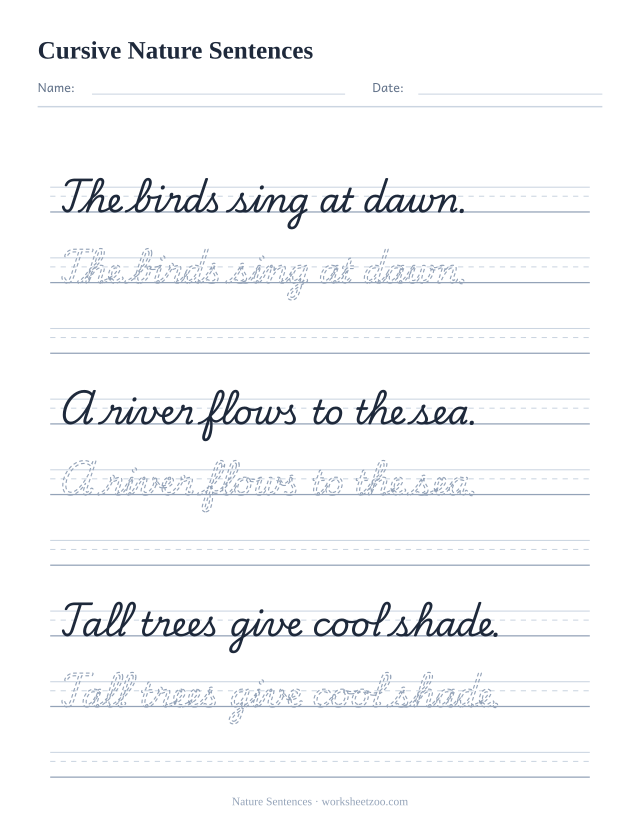 Cursive Nature Sentences
Name: Date:
The birds sing at dawn.
The birds sing at dawn.
A river flows to the sea.
A river flows to the sea.
Tall trees give cool shade.
Tall trees give cool shade.
Nature Sentences · worksheetzoo.com